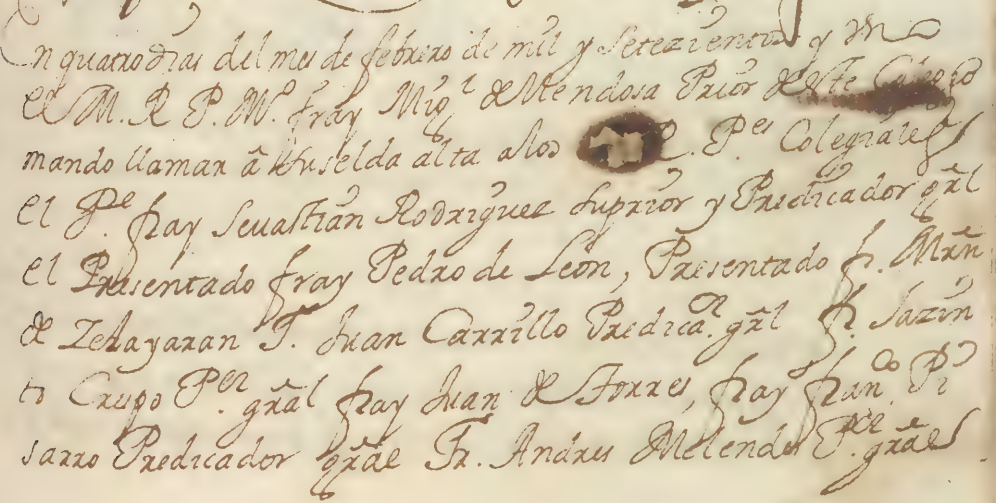 En quatro dias del mes de febrero de mil y Setezientos y
el M. R. P. M.º fray Mig.l de Mendosa Prior deste Colegio
mando llamar â su selda alta alos P.es Colegiales
el P.e fray Seuastian Rodriguez Suprior y Predicador grãl
el Presentado fray Pedro de León, Presentado fr. Mrñ
de Zelayaran F. Juan Carrillo Predica.or grãl fr. Jazin
to Crespo P.or grãl fray Juan de Storres, fray fran.co Pi
sarro Predicador grãl Fr. Andres Melendes P.or grales